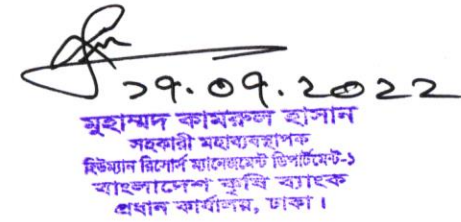 ১৭.০৭.২০২২
মুহাম্মদ কামরুল হাসান
সহকারী মহাব্যবস্থাপক
হিউম্যান রিসোর্স ম্যানেজমেন্ট ডিপার্টমেন্ট-১
বাংলাদেশ কৃষি ব্যাংক
প্রধান কার্যালয়, ঢাকা।